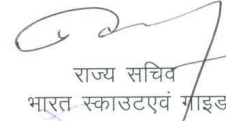 राज्य सचिव
भारत स्काउटएवं गाइड